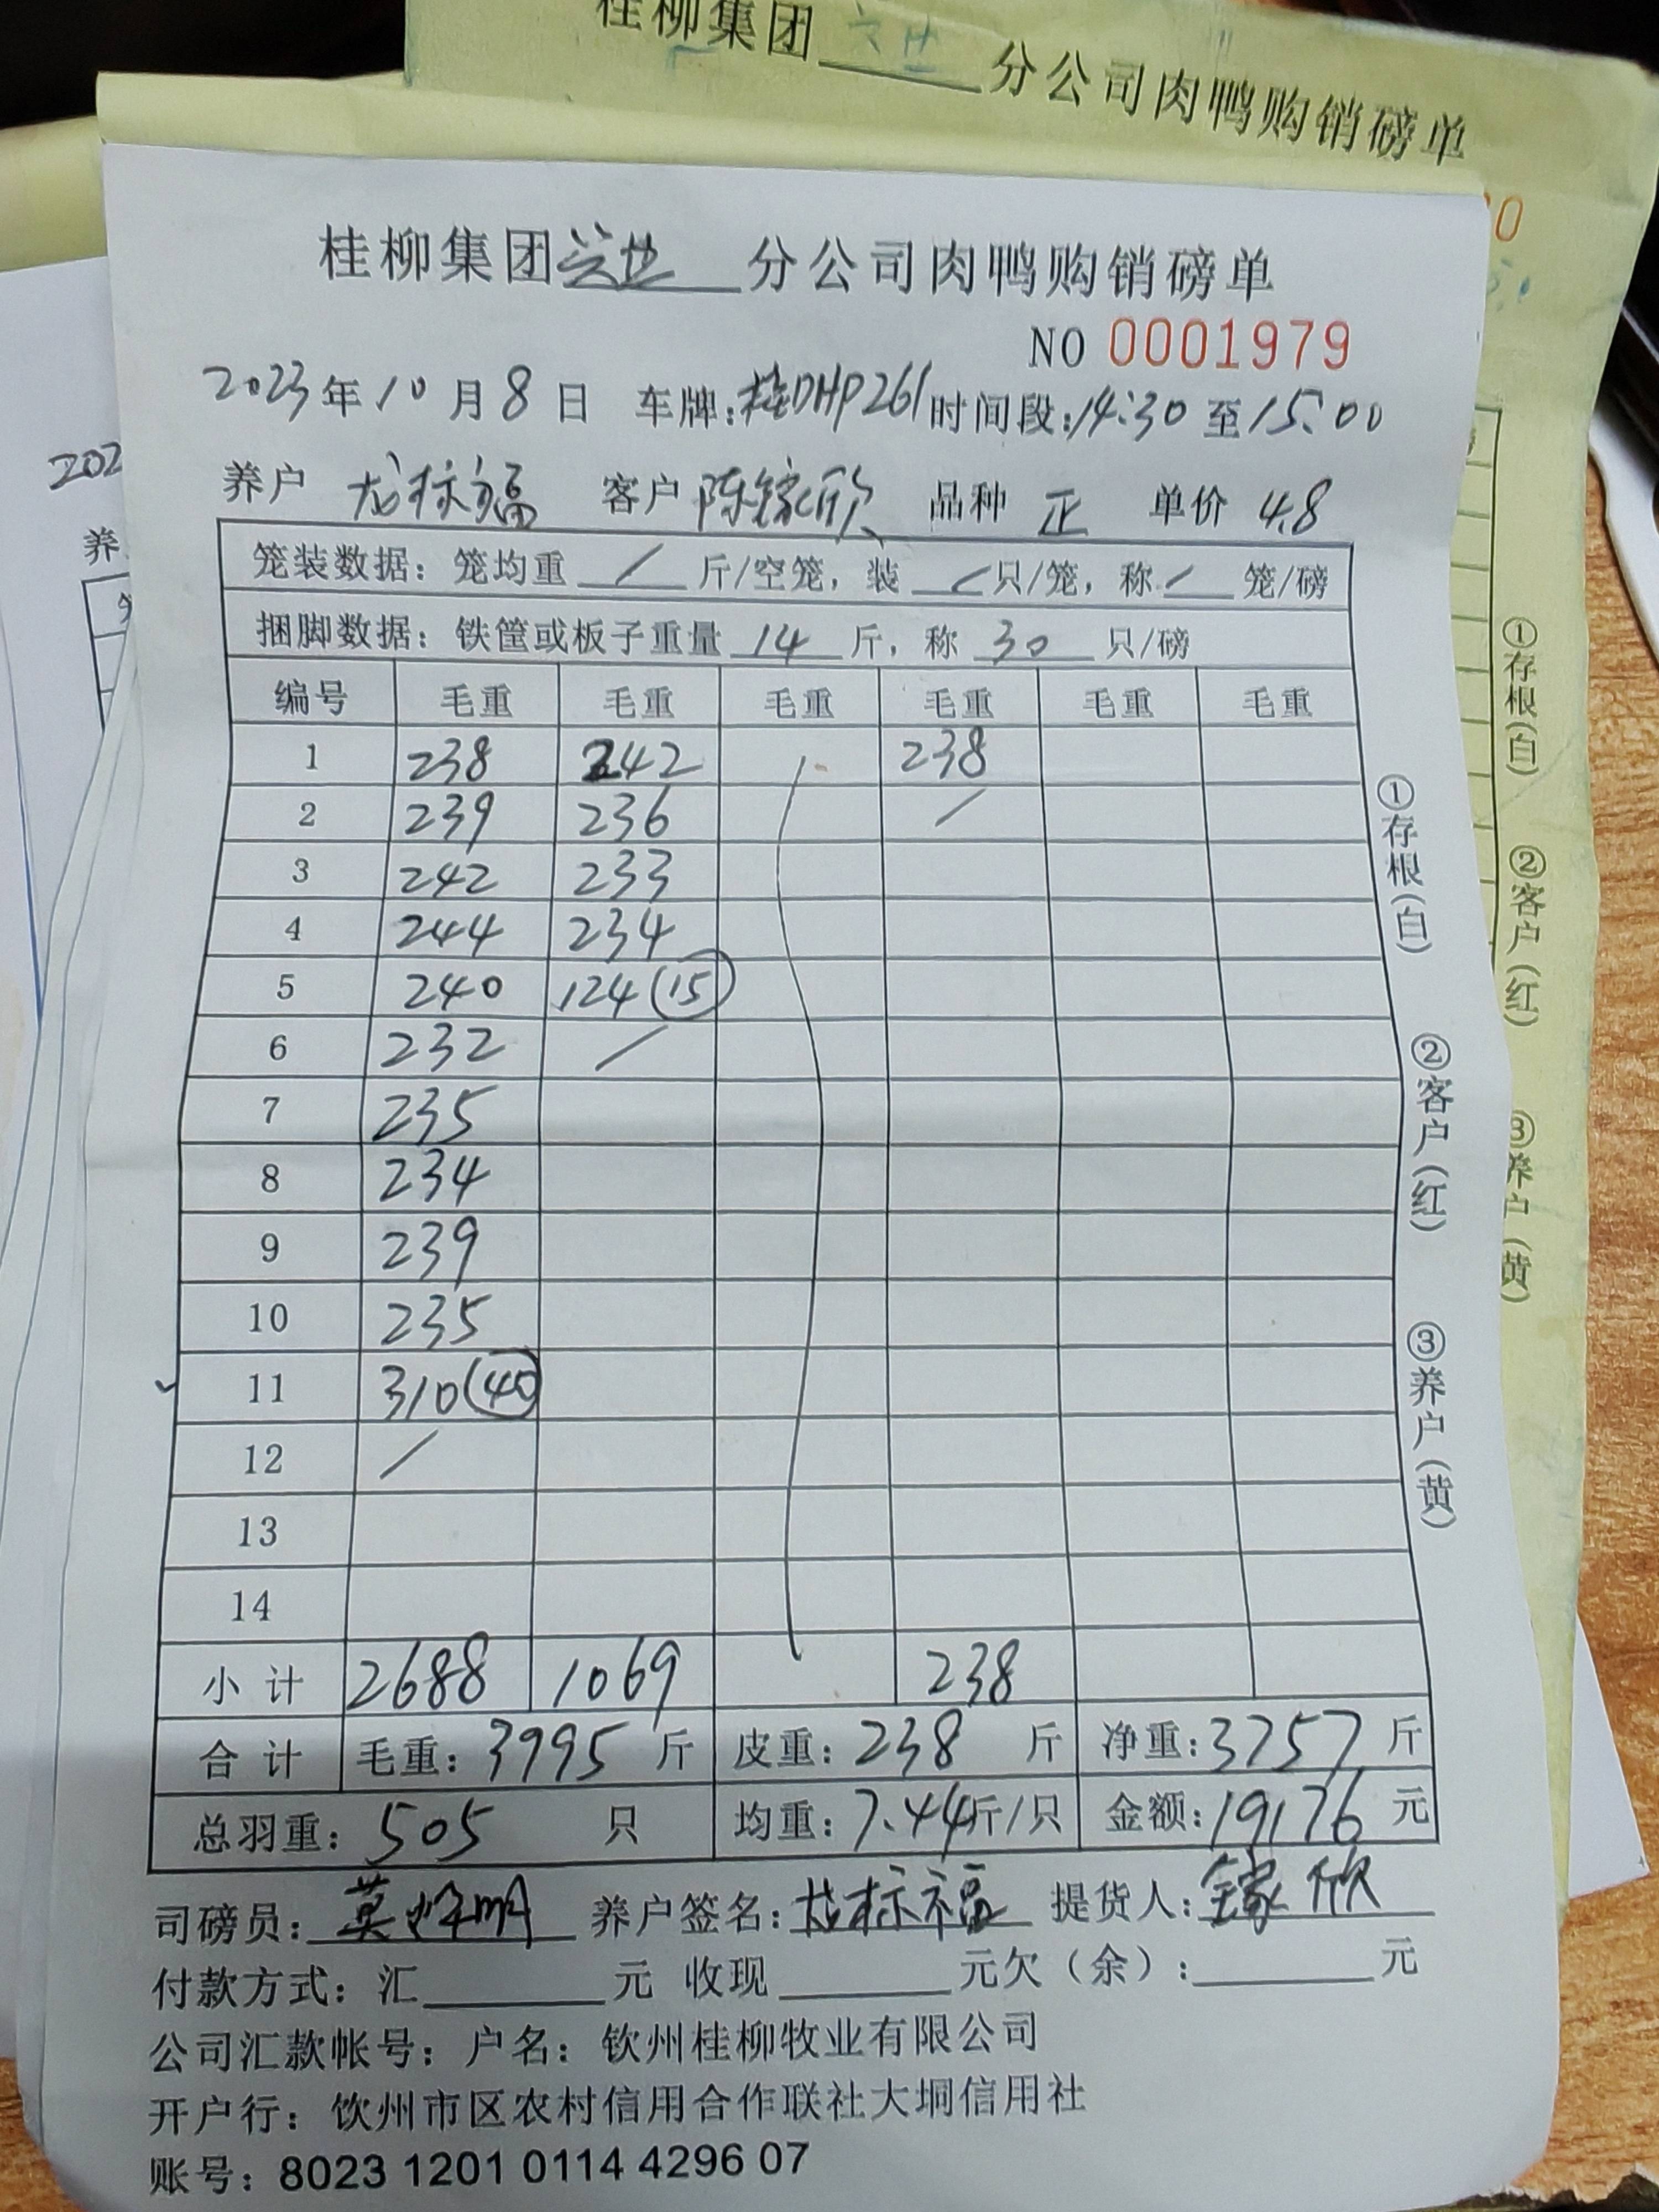 桂柳集团 分公司肉鸭购销磅单
桂柳集团 分公司肉鸭购销磅单
NO 0001979
2023年10月8日 车牌:桂DHP261 时间段:14:30至15:00
养户 龙标福 客户 陈镓欣 品种 正 单价 4.8
笼装数据：笼均重 / 斤/空笼，装 / 只/笼，称 / 笼/磅
捆脚数据：铁筐或板子重量 14 斤，称 30 只/磅
编号 毛重 毛重 毛重 毛重 毛重 毛重
1 238 242 238
2 239 236 /
3 242 233
4 244 234
5 240 124 (15)
6 232 /
7 235
8 234
9 239
10 235
11 310 (40)
12 /
13
14
小计 2688 1069 238
合计 毛重：3995 斤 皮重：238 斤 净重：3757 斤
总羽重：505 只 均重：7.44斤/只 金额：19176 元
司磅员： 养户签名：龙标福 提货人：镓欣
付款方式：汇 元 收现 元欠（余）： 元
公司汇款帐号：户名：钦州桂柳牧业有限公司
开户行：钦州市区农村信用合作联社大垌信用社
账号：8023 1201 0114 4296 07
①存根（白）
②客户（红）
③养户（黄）
①存根（白）
②客户（红）
③养户（黄）
202
养